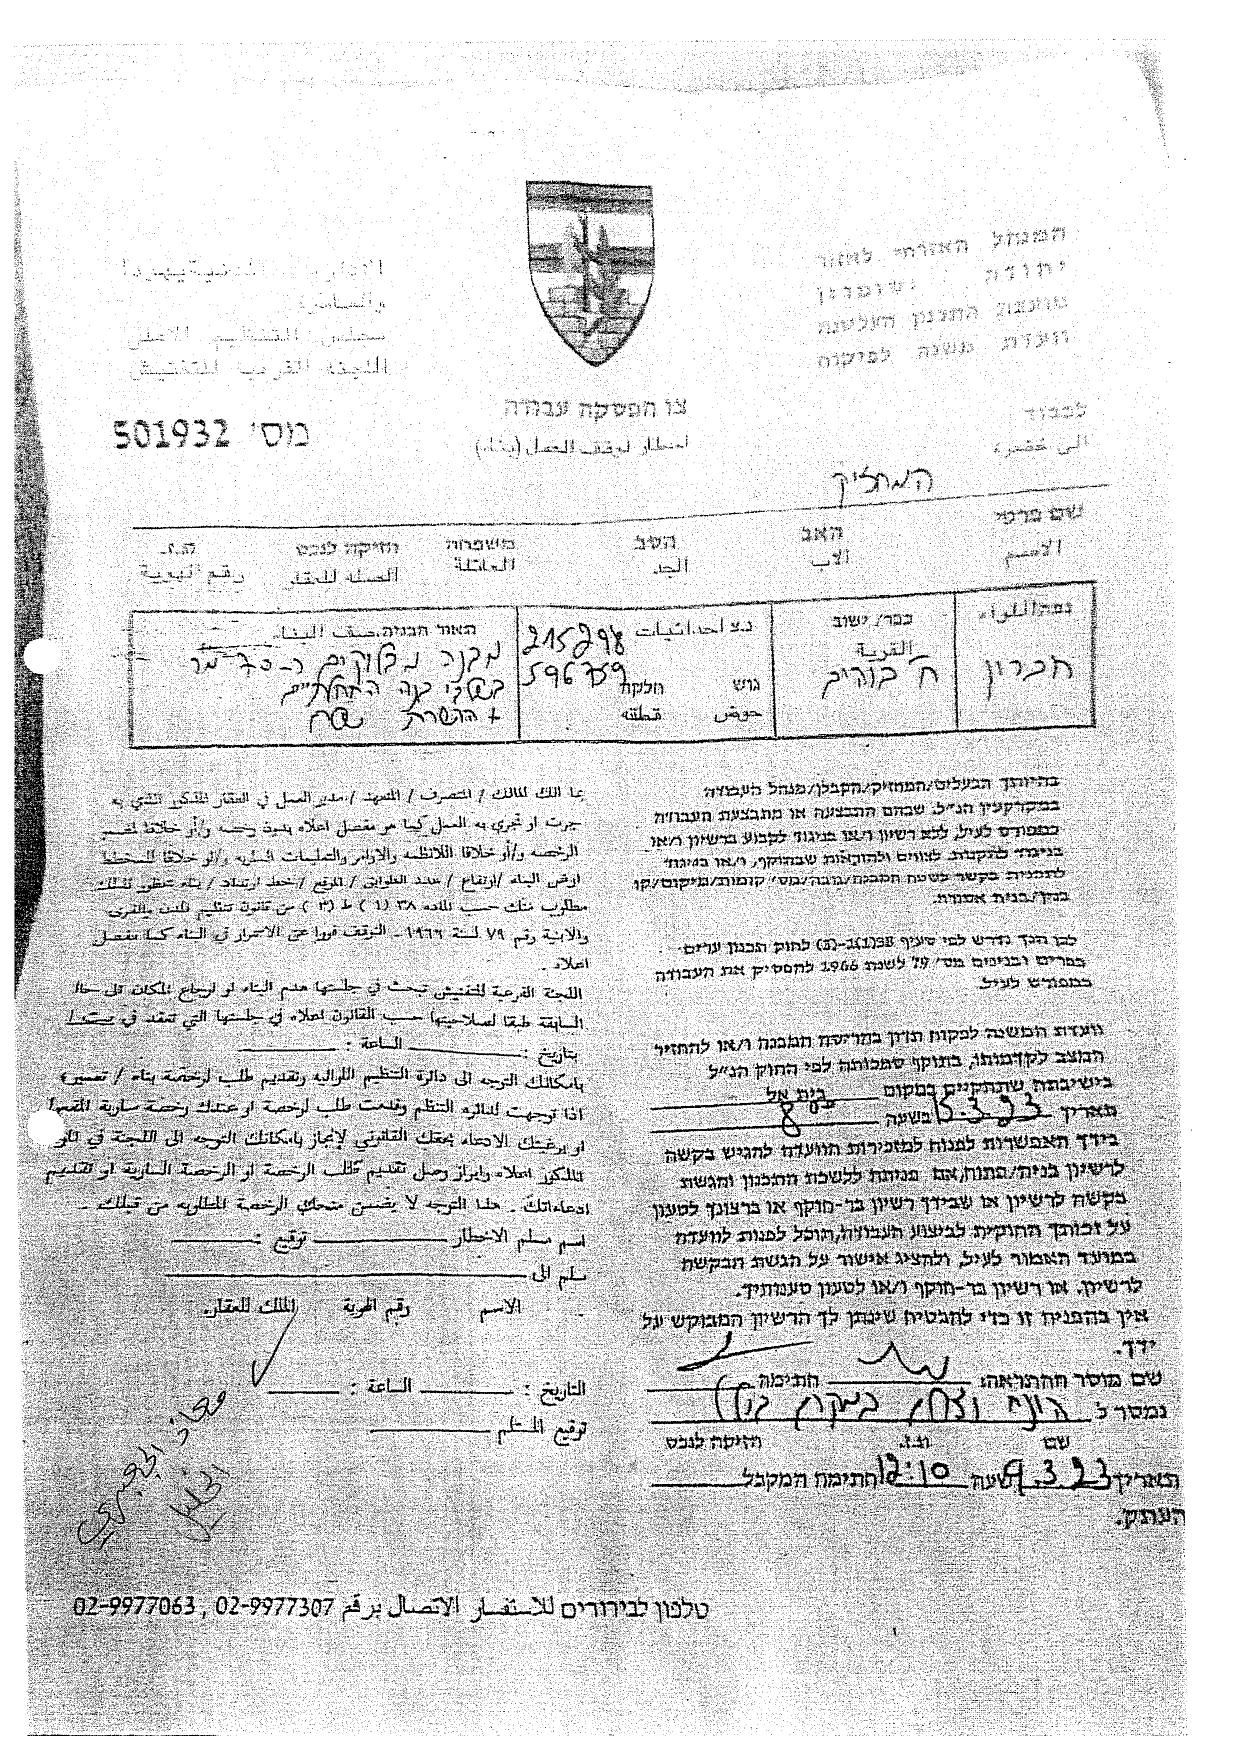 המנהל האזרחי לאזור
יהודה ושומרון
מועצת התכנון העליונה
ועדת משנה לפיקוח
الادارة المدنية يهودا
والسامرة
مجلس التنظيم الاعلى
اللجنة الفرعية للتفتيش
צו הפסקת עבודה
اخطار لوقف العمل (بناء)
מס' 501932
לכבוד
الى حضرة
המחזיק
שם פרטי האב הסב משפחה זיקה לנכס ת.ז.
الاسم الاب الجد العائلة الصلة للعقار رقم الهوية
נפה/اللواء
חברון
כפר/ישוב
القرية
ח' בורים
נ.צ احداثيات 215298
596759
גוש חלקה
حوض قطعة
תאור הבניה وصف البناء
בהיותך הבעלים/המחזיק/הקבלן/מנהל העבודה
במקרקעין הנ"ל, שבהם התבצעה או מתבצעת העבודה
כמפורט לעיל, ללא רשיון ו/או בניגוד לקבוע ברשיון ו/או
בניגוד לתקנות, לצווים ולהוראות שבתוקף, ו/או בניגוד
לתכנית בקשר לשטח המבנה/גובה/מס' קומות/מיקום/קו
בנין/בנית אסורה.
לכן הנך נדרש לפי סעיף 38(1)-(3) לחוק תכנון ערים
כפרים ובנינים מס' 79 לשנת 1966 להפסיק את העבודה
כמפורט לעיל.
וועדת המשנה לפקוח תדון בהריסת המבנה ו/או להחזיר
המצב לקדמותו, בתוקף סמכותה לפי החוק הנ"ל
בישיבתה שתתקיים במקום בית אל
תאריך 15.3.23 בשעה 8
בידך האפשרות לפנות למזכירות הוועדה להגיש בקשה
לרשיון בניה/פתוח, אם פנית ללשכת התכנון והגשת
בקשה לרשיון או שבידך רשיון בר-תוקף או ברצונך לטעון
על זכותך החוקית לביצוע העבודה, תוכל לפנות לוועדה
במועד האמור לעיל, ולהציג אישור על הגשת הבקשה
לרשיון, או רשיון בר-תוקף ו/או לטעון טענותיך.
אין בהפניה זו כדי להבטיח שינתן לך הרשיון המבוקש על
ידך.
שם מוסר ההתראה: חתימה
נמסר ל הונח
שם ת.ז. הזיקה לנכס
תאריך 9.3.23 שעה 12:10 חתימת המקבל
העתק.
بما انك المالك / المتصرف / المتعهد / مدير العمل في العقار المذكور الذي به
جرت او تجري به العمل كما هو مفصل اعلاه بدون رخصة و/أو خلافا لقسم
الرخصه و/أو خلافا للانظمه والاوامر والتعليمات الساريه و/أو خلافا للمخطط
ارض البناء /ارتفاع / عدد الطوابق / الموقع / خط ارتداد / بناء محظور لذلك
مطلوب منك حسب الماده ٣٨ (١) ط (٣) من قانون تنظيم المدن والقرى
والابنية رقم ٧٩ لسنة ١٩٦٦ - التوقف فورا عن الاستمرار في البناء كما مفصل
اعلاه .
اللجنة الفرعية للتفتيش تبحث في جلستها هدم البناء او ارجاع المكان الى حالته
السابقة طبقا لصلاحيتها حسب القانون اعلاه في جلستها التي تنعقد في
بتاريخ : الساعة :
بامكانك التوجه الى دائرة التنظيم اللوائيه وتقديم طلب لرخصة بناء / تعمير
اذا توجهت لدائره التنظيم وقدمت طلب لرخصة او عندك رخصة سارية المفعول
او برغبتك الادعاء بحقك القانوني لإنجاز بامكانك التوجه الى اللجنة في
المذكور اعلاه وابراز وصل تقديم طلب الرخصة او الرخصة السارية او تقديم
ادعاءاتك . هذا التوجه لا يضمن منحك الرخصة المطلوبه من قبلك .
اسم مسلم الاخطار توقيع :
سلم الى
الاسم رقم الهوية المالك للعقار
التاريخ : الساعة :
توقيع المستلم
טלפון לבירורים للاستفسار الاتصال برقم 02-9977307 , 02-9977063